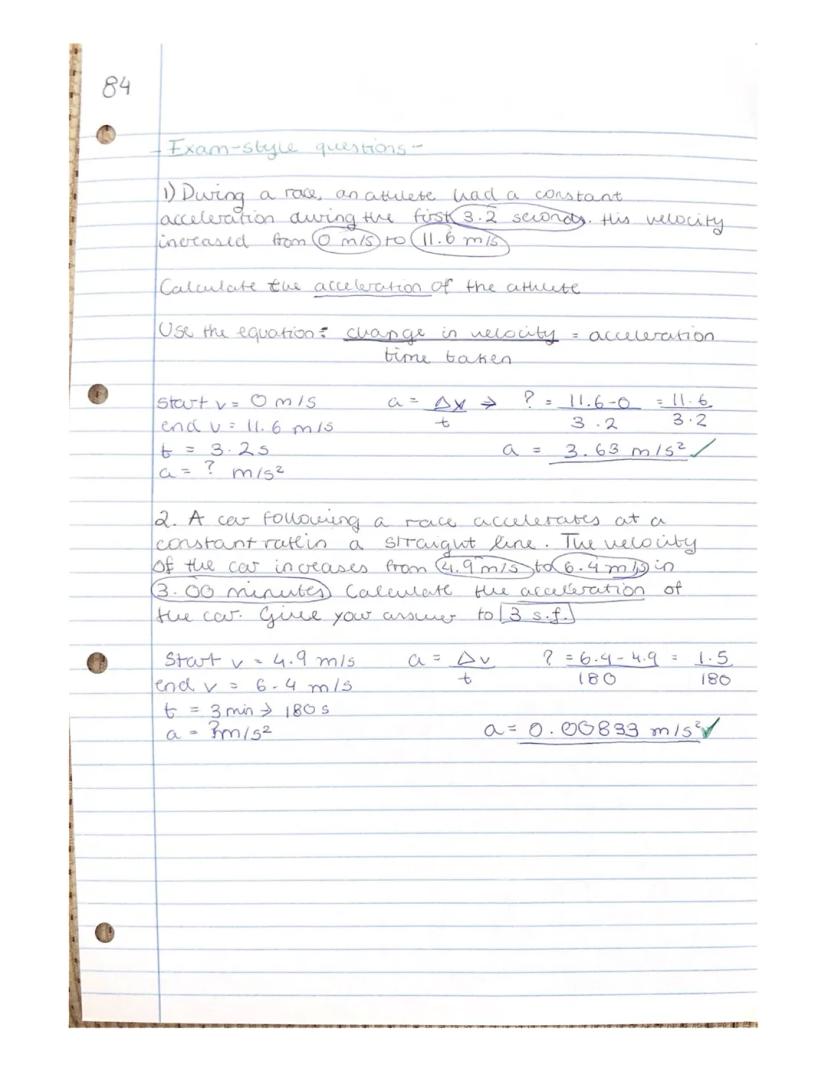 84
- Exam-style questions -
1) During a race, an athlete had a constant
acceleration during the first 3.2 seconds. His velocity
increased from 0 m/s to 11.6 m/s
Calculate the acceleration of the athlete
Use the equation: change in velocity = acceleration
time taken
start v = 0 m/s a = Δv → ? = 11.6-0 = 11.6
end v = 11.6 m/s t 3.2 3.2
t = 3.2s a = 3.63 m/s² ✓
a = ? m/s²
2. A car following a race accelerates at a
constant rate in a straight line. The velocity
of the car increases from 4.9 m/s to 6.4 m/s in
3.00 minutes. Calculate the acceleration of
the car. Give your answer to 3 s.f.
Start v = 4.9 m/s a = Δv ? = 6.4-4.9 = 1.5
end v = 6.4 m/s t 180 180
t = 3 min → 180s
a = ? m/s² a = 0.00833 m/s² ✓